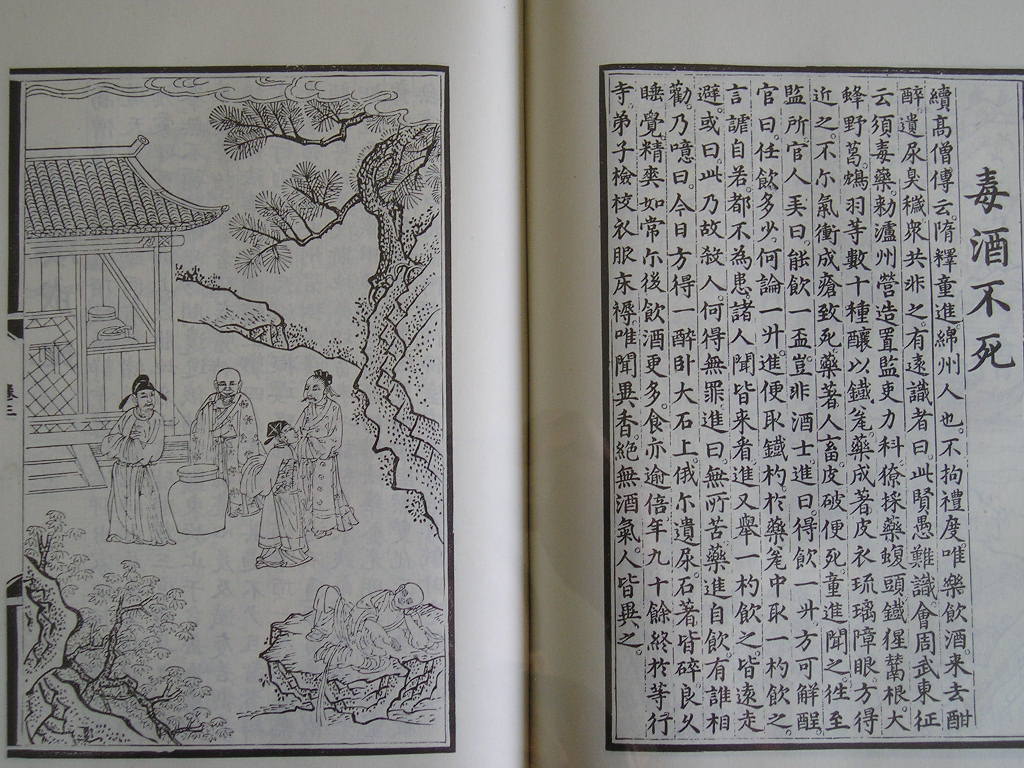 毒酒不死
續高僧傳云。隋釋童進。綿州人也。不拘禮度。唯樂飲酒。来去酣
醉。遺尿臭穢。衆共非之。有遠識者曰。此賢愚難識。會周武東征
云。須毒藥。勑瀘州營造。置監吏力。科獠採藥。蝮頭鐵猩䕡根。大
蜂野葛。鴆羽等數十種。釀以鐵瓮。藥成。著皮衣琉璃障眼。方得
近之。不尒氣衝成瘡致死。藥著人畜皮破便死。童進聞之。往至
監所。官人弄曰。能飲一盃。豈非酒士。進曰。得飲一升。方可解酲。
官曰。任飲多少。何論一升。進便取鐵杓。於藥瓮中取一杓飲之。
言謔自若。都不為患。諸人聞皆来看。進又舉一杓飲之。皆遠走
避。或曰。此乃故殺人。何得無罪。進曰。無所苦藥。進自飲。有誰相
勸。乃噫曰。今日方得一醉。卧大石上。俄尒遺尿。石著皆碎。良久
睡覺。精爽如常。尒後飲酒更多。食亦逾倍。年九十餘。終於等行
寺。弟子檢校衣服床褥。唯聞異香。絕無酒氣。人皆異之。
卷三